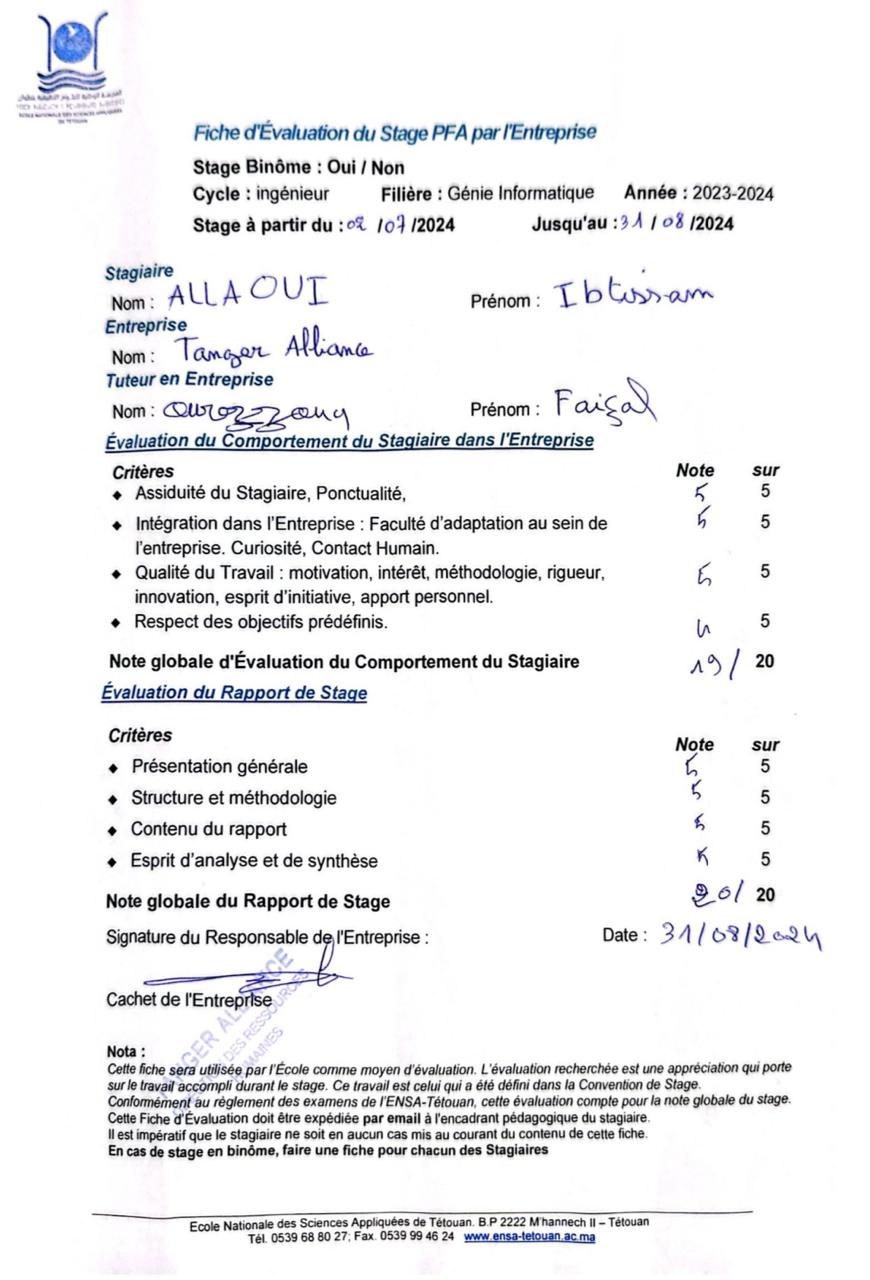 ECOLE NATIONALE DES SCIENCES APPLIQUEES
DE TETOUAN
Fiche d'Évaluation du Stage PFA par l'Entreprise
Stage Binôme : Oui / Non
Cycle : ingénieur Filière : Génie Informatique Année : 2023-2024
Stage à partir du : 02 /07 /2024 Jusqu'au : 31 / 08 /2024
Stagiaire
Nom : ALLAOUI Prénom : Ibtissam
Entreprise
Nom : Tanger Alliance
Tuteur en Entreprise
Nom : Prénom : Faiçal
Évaluation du Comportement du Stagiaire dans l'Entreprise
Critères Note sur
◆ Assiduité du Stagiaire, Ponctualité, 5 5
◆ Intégration dans l'Entreprise : Faculté d'adaptation au sein de 5 5
l'entreprise. Curiosité, Contact Humain.
◆ Qualité du Travail : motivation, intérêt, méthodologie, rigueur, 5 5
innovation, esprit d'initiative, apport personnel.
◆ Respect des objectifs prédéfinis. 4 5
Note globale d'Évaluation du Comportement du Stagiaire 19 / 20
Évaluation du Rapport de Stage
Critères Note sur
◆ Présentation générale 5 5
◆ Structure et méthodologie 5 5
◆ Contenu du rapport 5 5
◆ Esprit d'analyse et de synthèse 5 5
Note globale du Rapport de Stage 20/ 20
Signature du Responsable de l'Entreprise : Date : 31/08/2024
Cachet de l'Entreprise
TANGER ALLIANCE
DES RESSOURCES
HUMAINES
Nota :
Cette fiche sera utilisée par l'École comme moyen d'évaluation. L'évaluation recherchée est une appréciation qui porte
sur le travail accompli durant le stage. Ce travail est celui qui a été défini dans la Convention de Stage.
Conformément au règlement des examens de l'ENSA-Tétouan, cette évaluation compte pour la note globale du stage.
Cette Fiche d'Évaluation doit être expédiée par email à l'encadrant pédagogique du stagiaire.
Il est impératif que le stagiaire ne soit en aucun cas mis au courant du contenu de cette fiche.
En cas de stage en binôme, faire une fiche pour chacun des Stagiaires
Ecole Nationale des Sciences Appliquées de Tétouan. B.P 2222 M'hannech II – Tétouan
Tél. 0539 68 80 27; Fax. 0539 99 46 24 www.ensa-tetouan.ac.ma